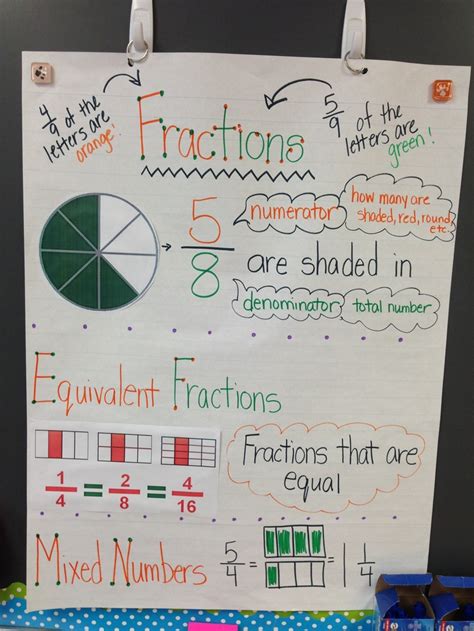 4/9 of the
letters are
orange!
Fractions
5/9 of the
letters are
green!
5/8
numerator
how many are
shaded, red, round,
etc.
are shaded in
denominator
total number
Equivalent Fractions
1/4 = 2/8 = 4/16
Fractions that are
equal
Mixed Numbers 5/4 = = 1 1/4